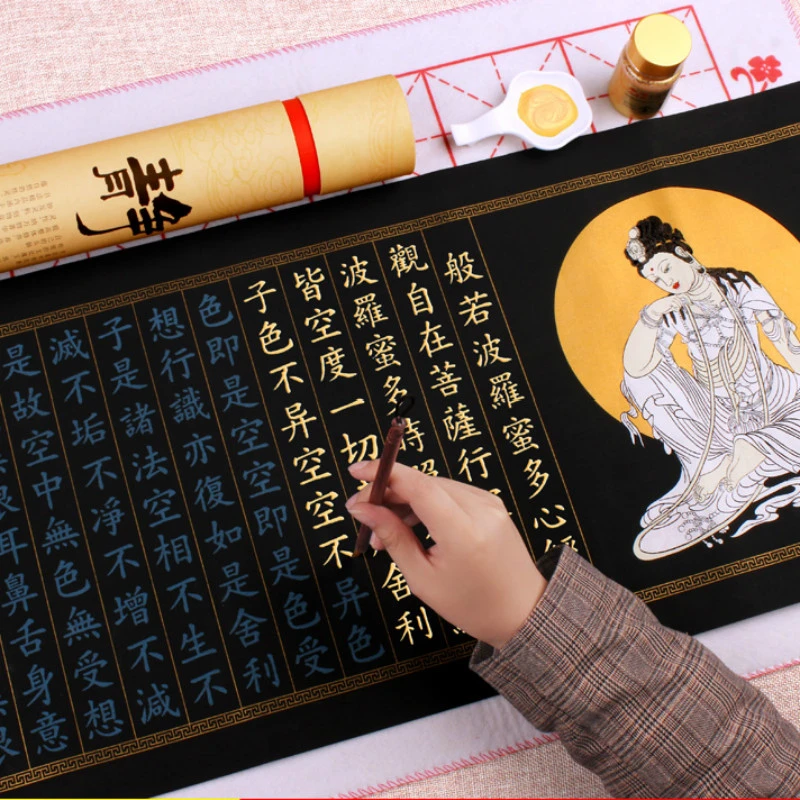 般若波羅蜜多心經
觀自在菩薩行
波羅蜜多時照
皆空度一切舍利
子色不异空空不异色
色即是空空即是色受
想行識亦復如是舍利
子是諸法空相不生不
滅不垢不淨不增不減
是故空中無色無受想
耳鼻舌身意
靜